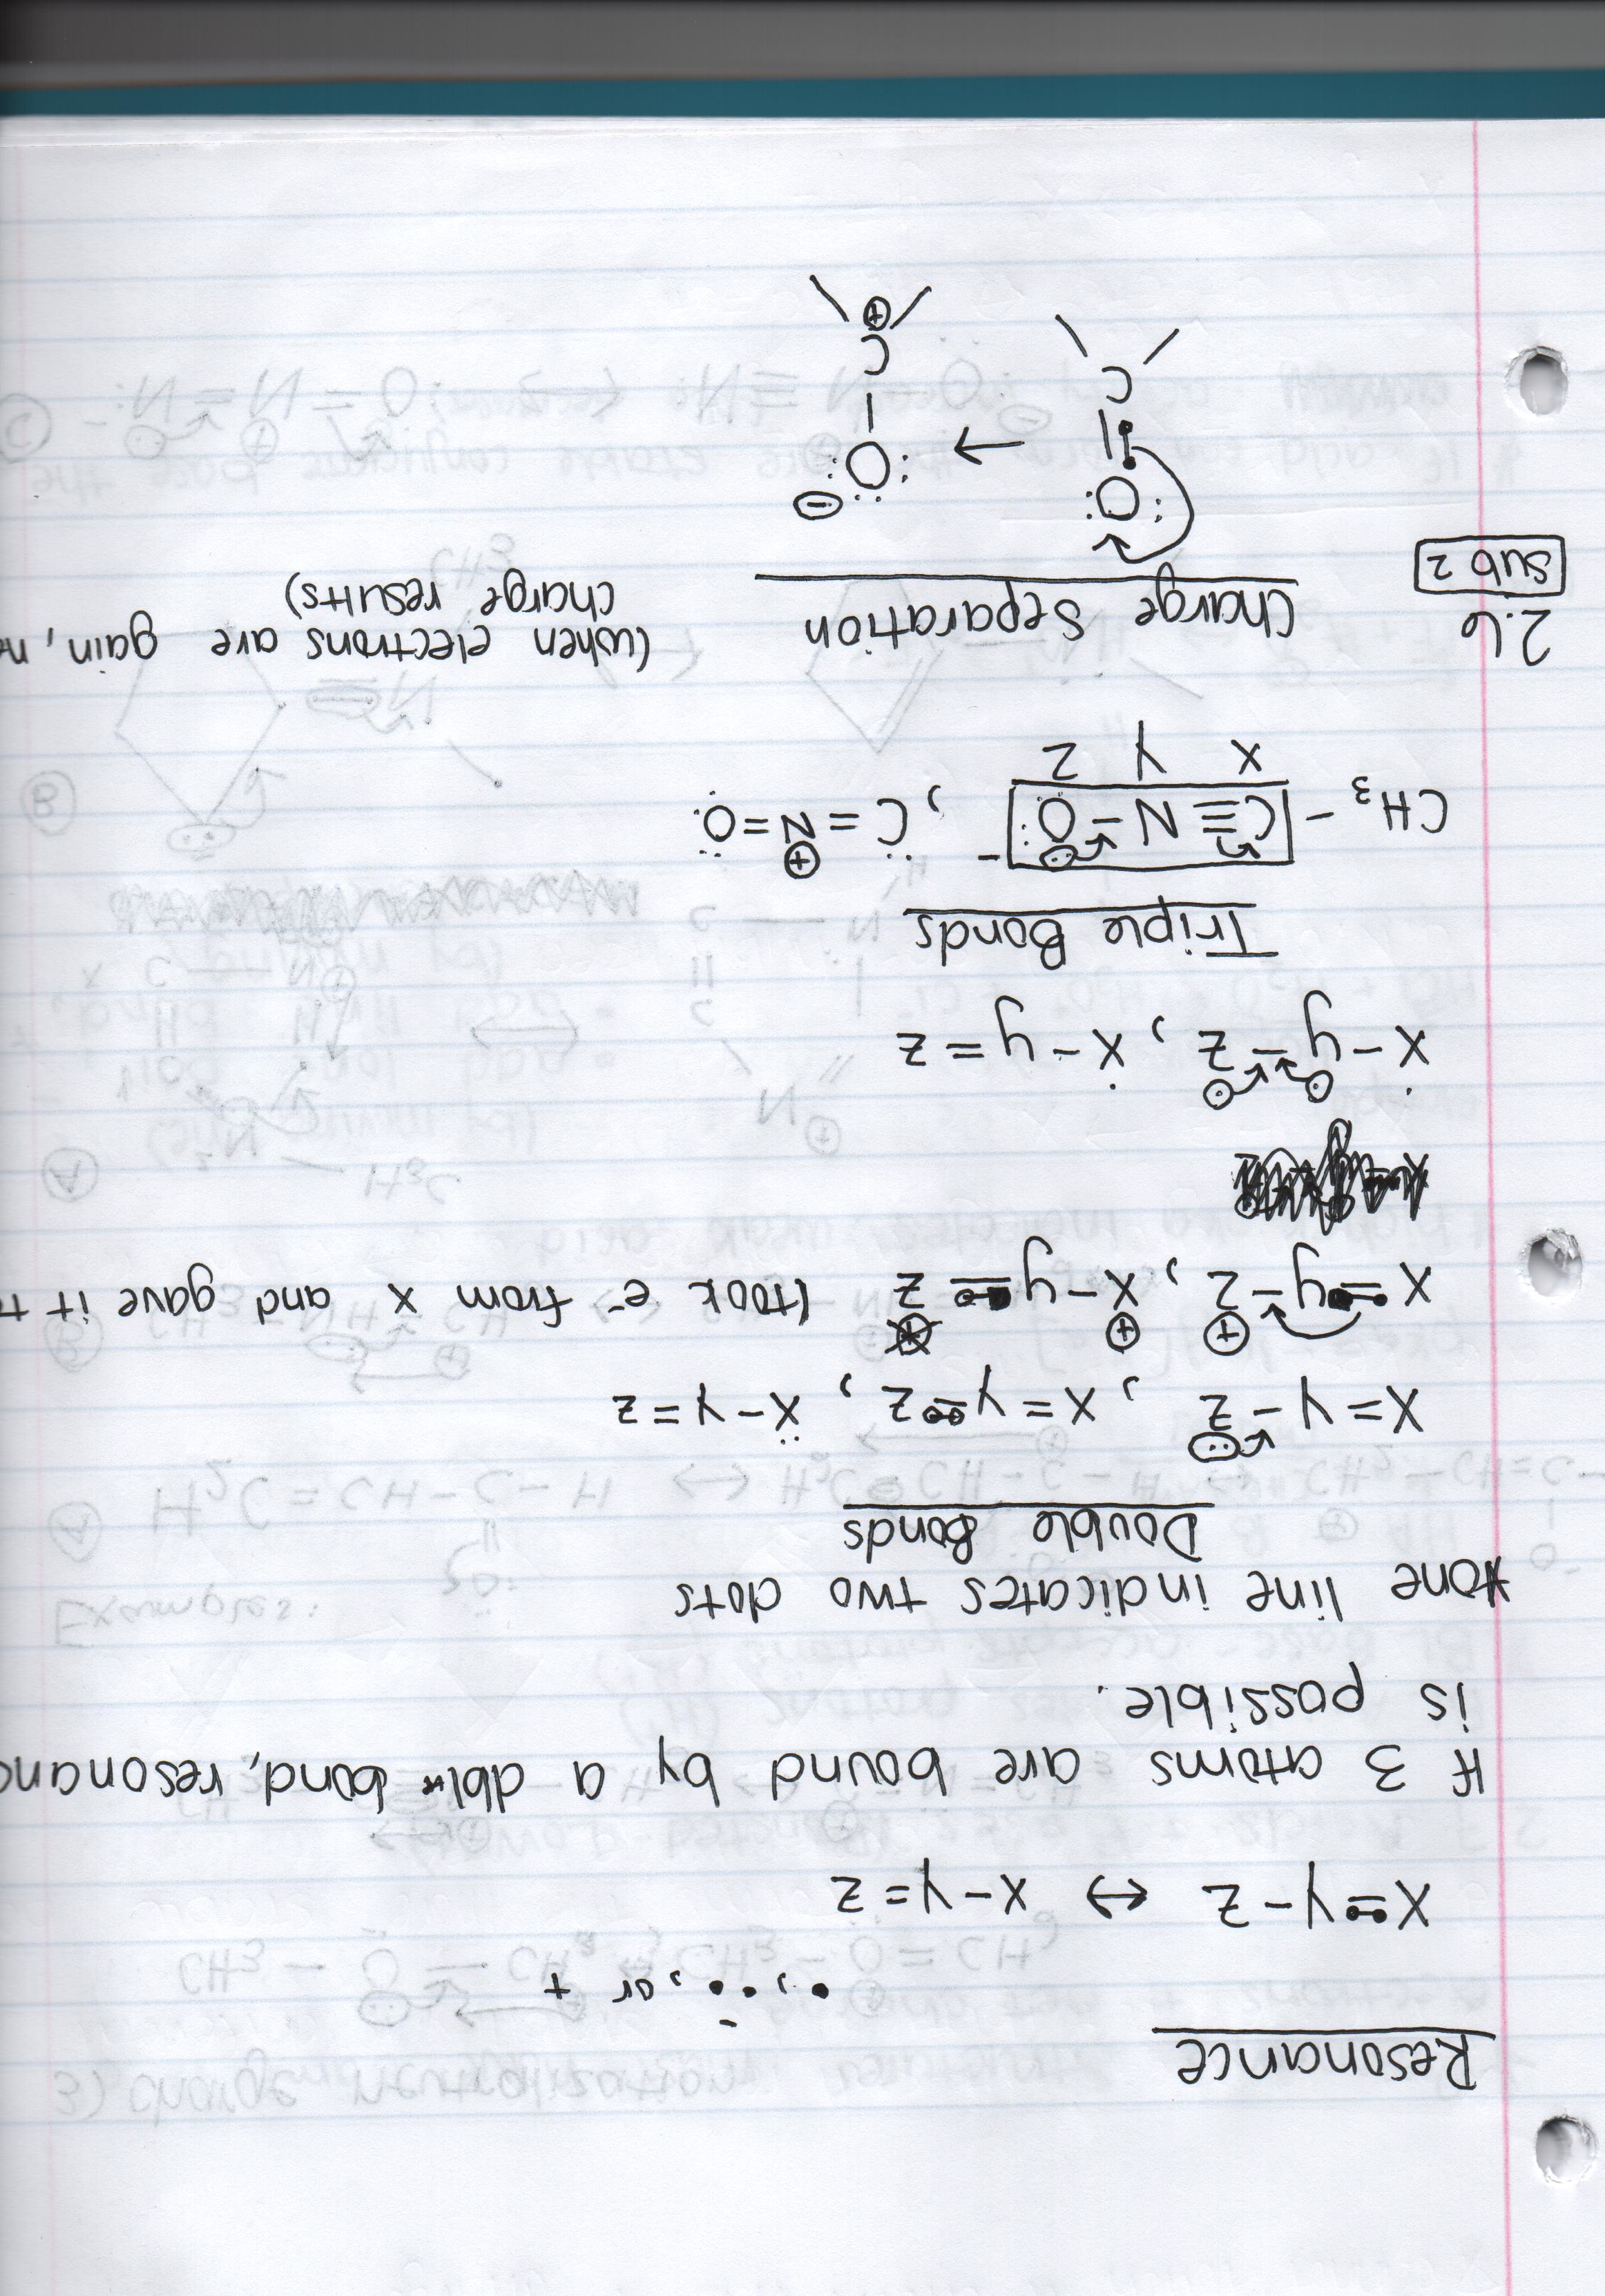 Resonance
•, ••, or +
-
X=Y-Z ↔ X-Y=Z
If 3 atoms are bound by a dbl bond, resonanc
is possible.
*one line indicates two dots
Double Bonds
X=Y-Z̈, X=Y-Z, Ẍ-Y=Z
X=y-Z⊕, X⊕-y=Z (took e⁻ from x and gave it t
Ẋ-y-Ż, Ẋ-y=Z
Triple Bonds
CH₃-C≡N-Ö:⁻, C̈=N⊕=Ö
X Y Z
2.6 Charge Separation (when electrons are gain, n
sub 2 charge results)
:O: → :Ö: ⊖
|| |
C C
⊕